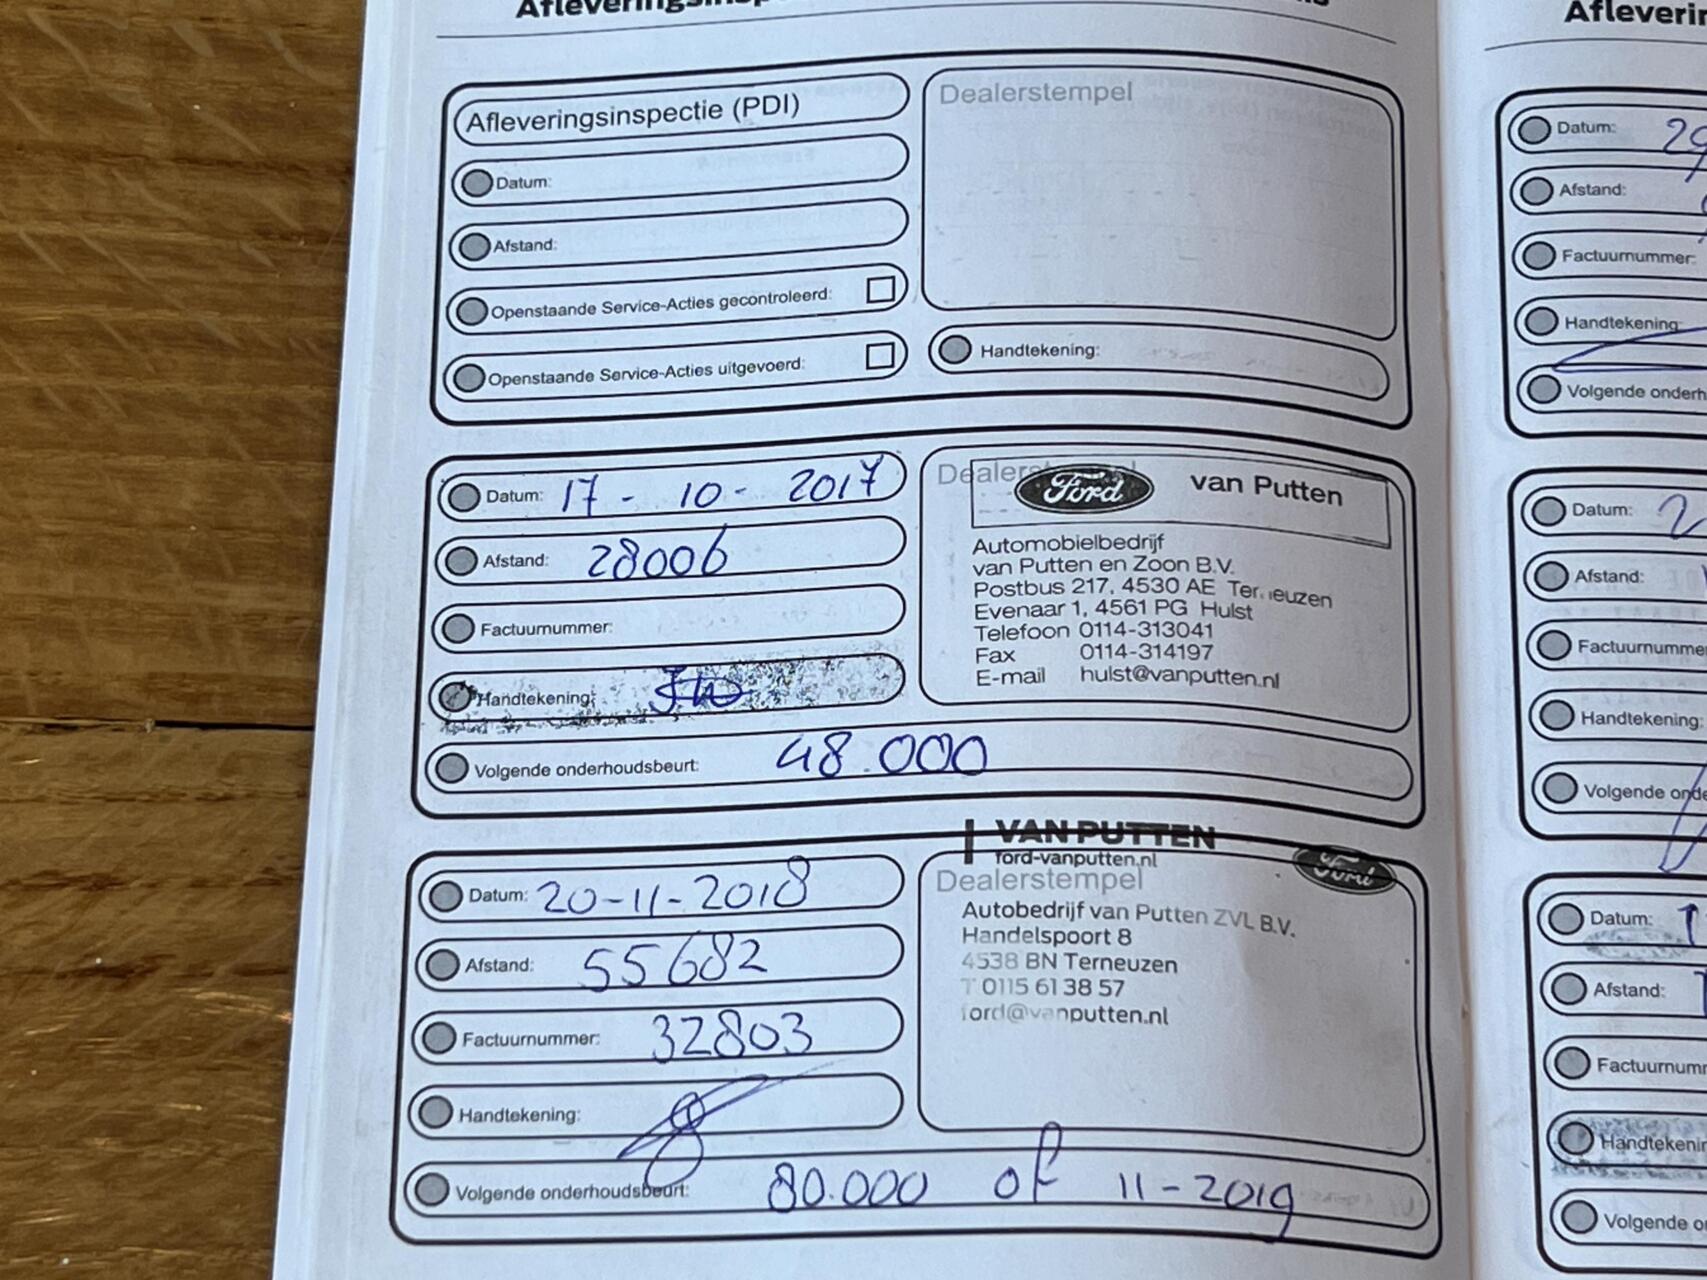 Afleveringsinspectie (PDI)
Datum:
Afstand:
Openstaande Service-Acties gecontroleerd:
Openstaande Service-Acties uitgevoerd:
Dealerstempel
Handtekening:
Datum: 17 - 10 - 2017
Afstand: 28006
Factuurnummer:
Handtekening:
Volgende onderhoudsbeurt: 48.000
Dealerstempel
Ford van Putten
Automobielbedrijf
van Putten en Zoon B.V.
Postbus 217, 4530 AE Terneuzen
Evenaar 1, 4561 PG Hulst
Telefoon 0114-313041
Fax 0114-314197
E-mail hulst@vanputten.nl
Datum: 20-11-2018
Afstand: 55682
Factuurnummer: 32803
Handtekening:
Volgende onderhoudsbeurt: 80.000 of 11-2019
VAN PUTTEN
ford-vanputten.nl
Ford
Dealerstempel
Autobedrijf van Putten ZVL B.V.
Handelspoort 8
4538 BN Terneuzen
T 0115 61 38 57
ford@vanputten.nl
Datum:
Afstand:
Factuurnummer:
Handtekening
Volgende
Datum:
Afstand:
Handtekening:
Volgende
Datum:
Afstand:
Volgende